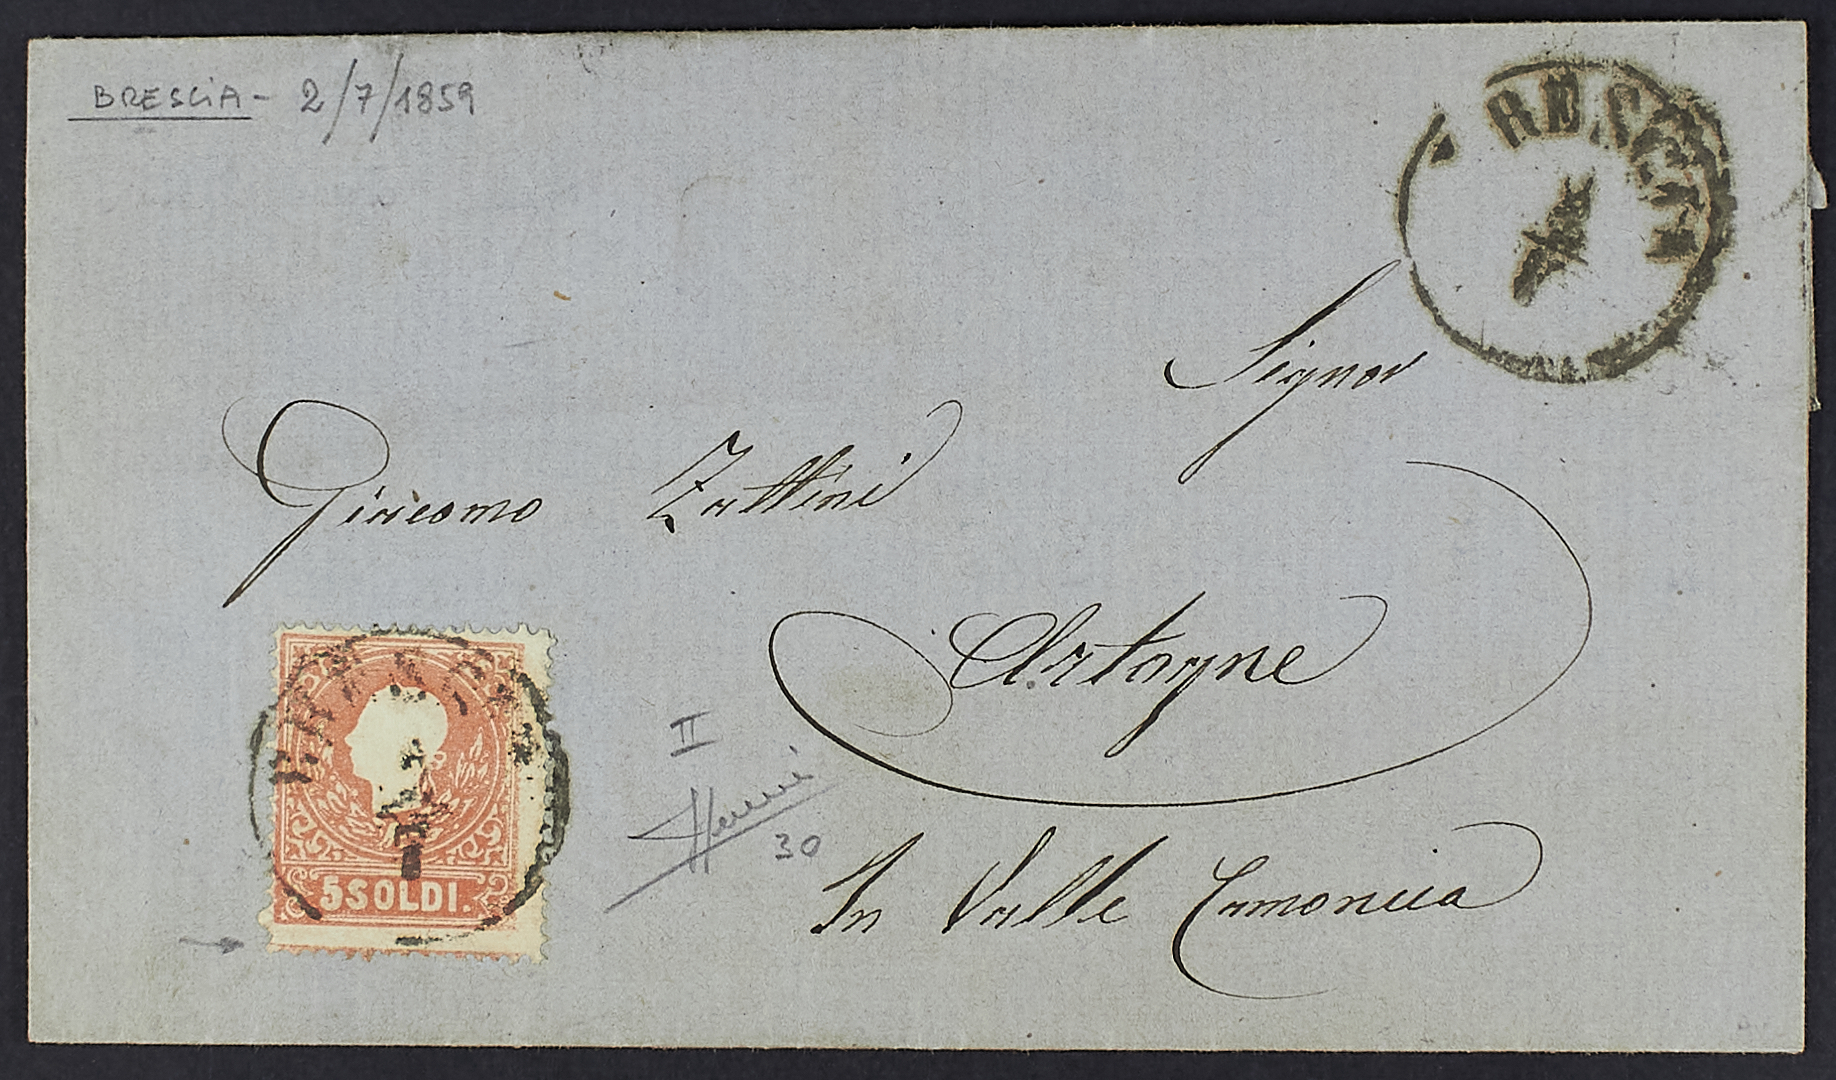 BRESCIA - 2/7/1859
BRESCIA
Signor
Giacomo Zattini
Artogne
In Valle Camonica
II
30
BRESCIA
5 SOLDI.